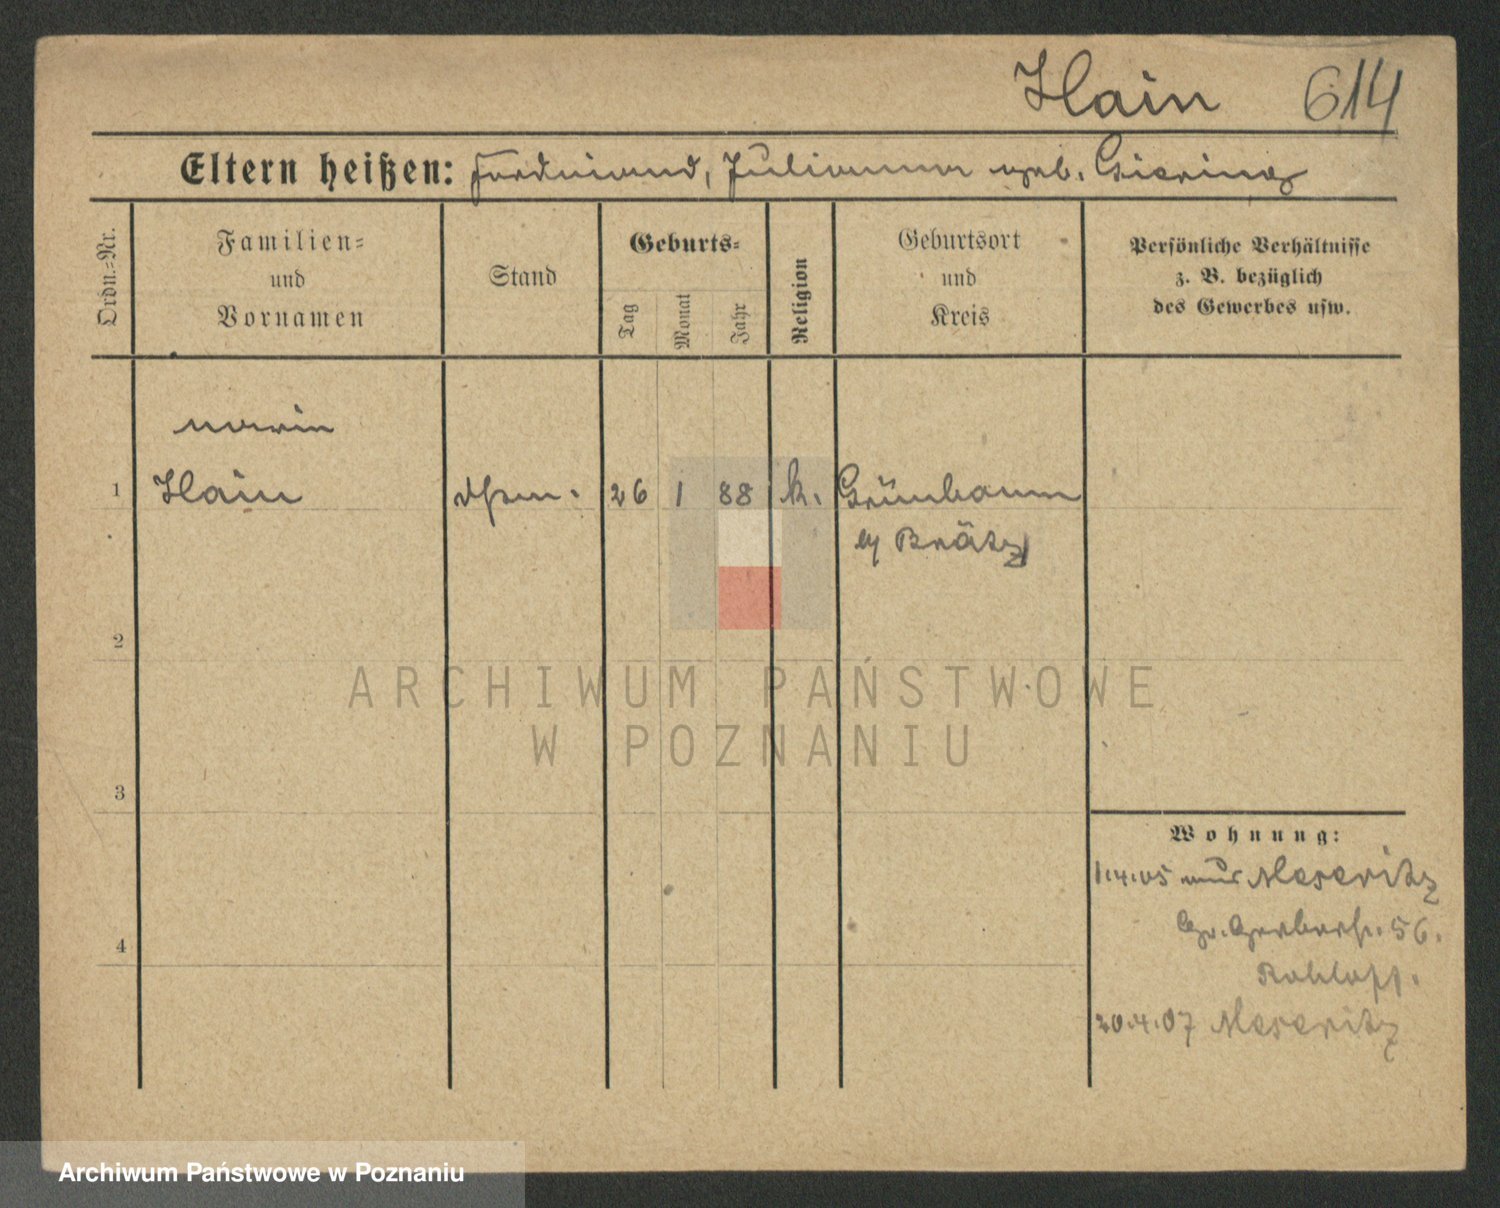 Hain 614
Eltern heißen: Ferdinand, Julianna geb. Giering
Ordn.-Nr.
Familien-
und
Vornamen
Stand
Geburts-
Tag
Monat
Jahr
Religion
Geburtsort
und
Kreis
Persönliche Verhältnisse
z. B. bezüglich
des Gewerbes usw.
1 Hain 26 1 88 k. Grünbaum
b/ Brätz
2
3
4
Wohnung:
1.4.05 aus Meseritz
Gr. Gerberstr. 56.
20.4.07 Meseritz
ARCHIWUM PAŃSTWOWE
W POZNANIU
Archiwum Państwowe w Poznaniu